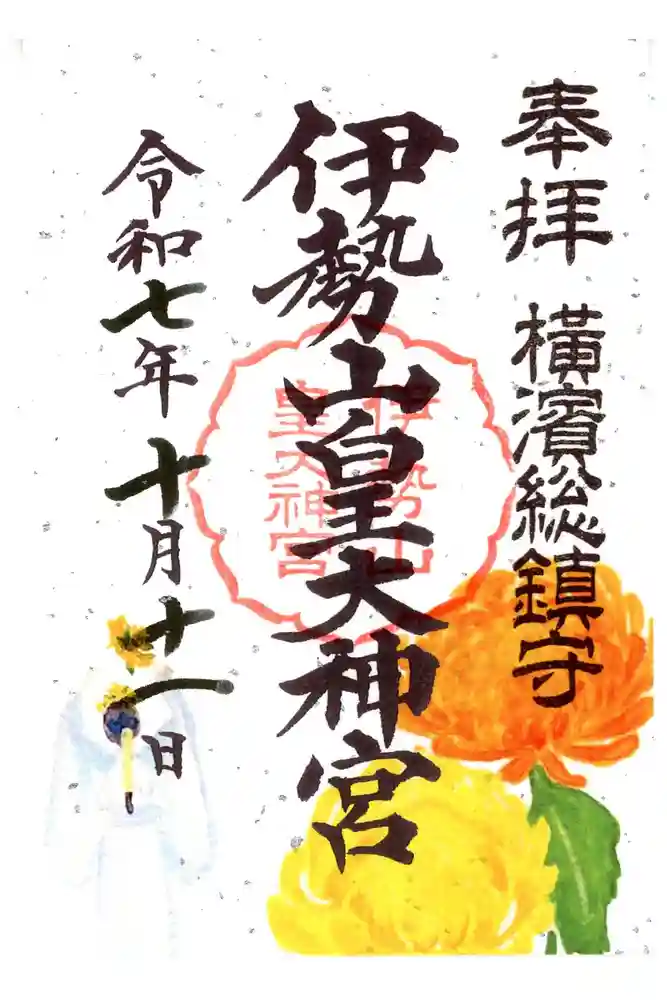 奉拝
横濱総鎮守
伊勢山皇大神宮
伊勢山
皇大神宮
令和七年十月十一日